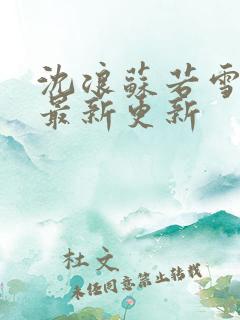 沈浪蘇若雪
最新更新
杜文
未经同意禁止转载